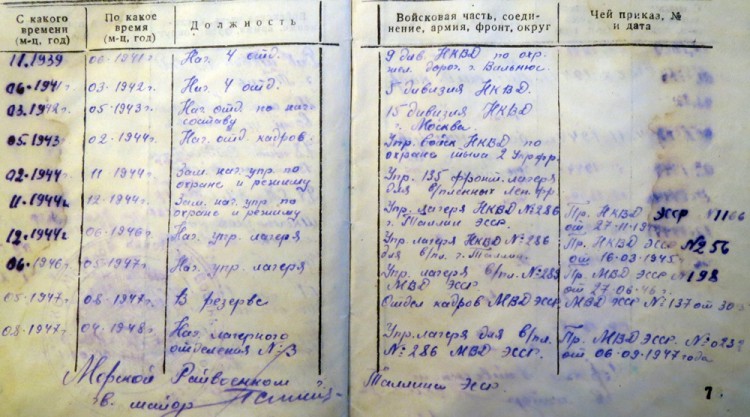 С какого времени (м-ц, год)
По какое время (м-ц, год)
Должность
Войсковая часть, соединение, армия, фронт, округ
Чей приказ, № и дата
11.1939 06-1941г. Нач. 4 отд. 9 див. НКВД по охр.
жел. дорог г. Вильнюс.
06-1941г. 03-1942г. Нач. 4 отд. 5 дивизия НКВД.
03.1942г. 05-1943г. Нач. отд. по нач. 15 дивизия НКВД
составу г. Москва.
05.1943 02-1944г. Нач. отд. кадров. Упр. войск НКВД по
охране тыла 2 Укр. фр.
02-1944г 11-1944г Зам. нач. упр. по Упр. 135 фронт. лагеря
охране и режиму для в/пленных Лен. фр
11-1944г 12-1944г. Зам. нач. упр. по Упр. лагеря НКВД № 286 Пр. НКВД ЭССР № 1166
охране и режиму г. Таллин ЭССР. от 27-11-19
12-1944г 06-1946г. Нач. упр. лагеря Упр. лагеря НКВД № 286 Пр. НКВД ЭССР № 56
для в/пл. г. Таллин. от 16-03-1945г.
06-1946г. 05-1947г. Нач. упр. лагеря Упр. лагеря в/пл. № 289 Пр. МВД ЭССР № 198
МВД ЭССР от 27-06-46г.
05-1947г. 08-1947г. В резерве Отдел кадров МВД ЭССР МВД ЭССР № 137 от 30
08-1947г 04-1948г. Нач. лагерного Упр. лагеря для в/пл. Пр. МВД ЭССР. № 023
отделения № 3 № 286 МВД ЭССР. от 06-09-1947 года
Морской Райвоенком Таллин ЭССР
г.в. майор
7